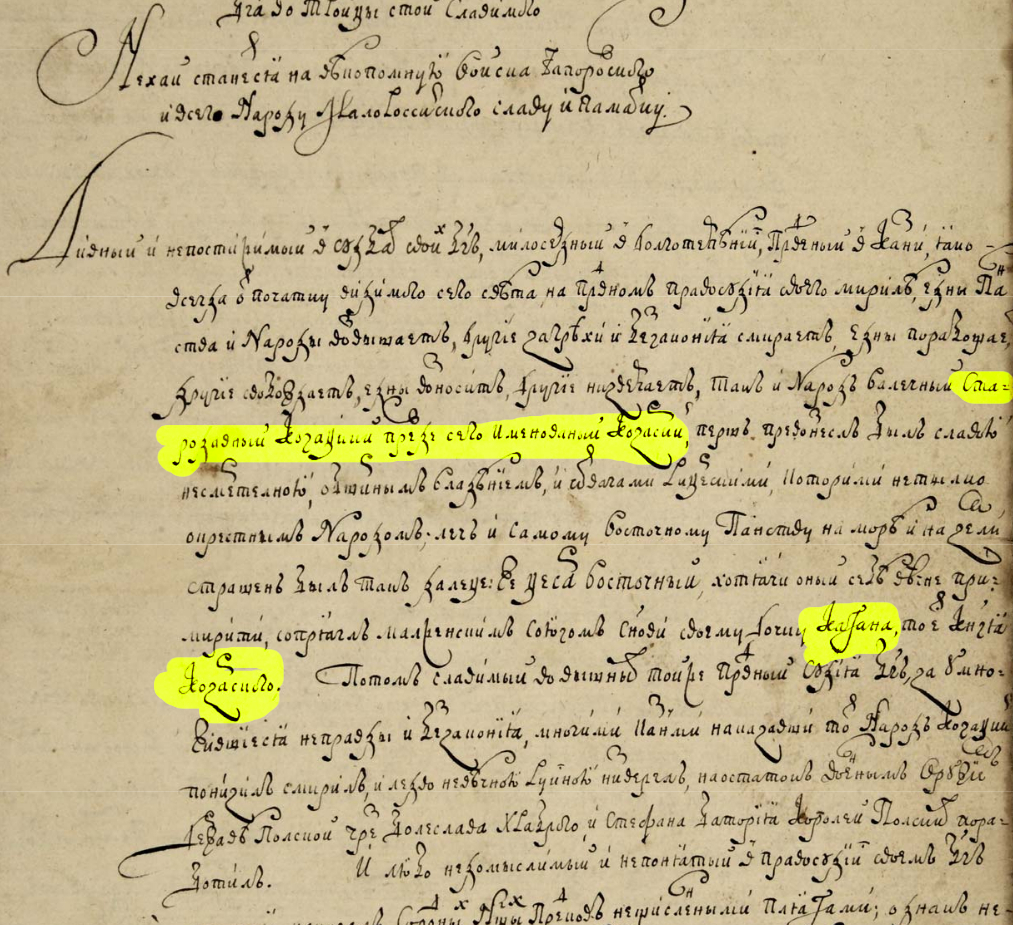 Бга во Тройцы стой Славимого
Нехай станетсѧ на вѣкопомную Войска Запорозкого
и всего Народу Малороссійского славу и памятку.
Дивный и непостижимый в судбах свойх Бгъ, милосердный в долготерпѣніи, Првдный в казни, яко
всегда ѿ початку видимого сего свѣта, на првдном правосудія своего мирилѣ, едны Пан-
ства и Народы возвышаетъ, другіе за грѣхи и беззаконія смираетъ, едны порабощает,
другіе свобождаетъ, едны возноситъ, другіе низвергаетъ, такъ и Народъ валечный Ста-
розавный Козацкий прежде сего именованый Козарскій, першъ превознеслъ былъ славою
несмертелною, обширнымъ владѣніемъ, и ѿвагами рыцерскими, которими нетылко
окрестнымъ Народомъ, лечъ и Самому Восточному Панству на морѣ и на земли
страшенъ былъ такъ далеце: же Цесаръ Восточный, хотячи оный себѣ вѣчне при-
мирити, сопрягалъ малженскимъ союзомъ Сынови своему дочку Кагана, то ест Князя
Козарского. Потомъ славимый во вышних тойже првдный Судія Бгъ, за умно-
жившіеся неправды и беззаконія, многими казнми наказавши той Народъ Козацкий
понизилъ смирилъ, и ледво невѣчною руиною низверглъ, наостатокъ военнымъ Оружіемъ
Державѣ Полской чрез Болеслава Храброго и Стефана Баторія Королей Полских пора-
ботилъ. И любо неомыслимый и непонятый в правосудіи своемъ Бгъ
Стороны Нашы неищисленыими плягами; однакъ не-